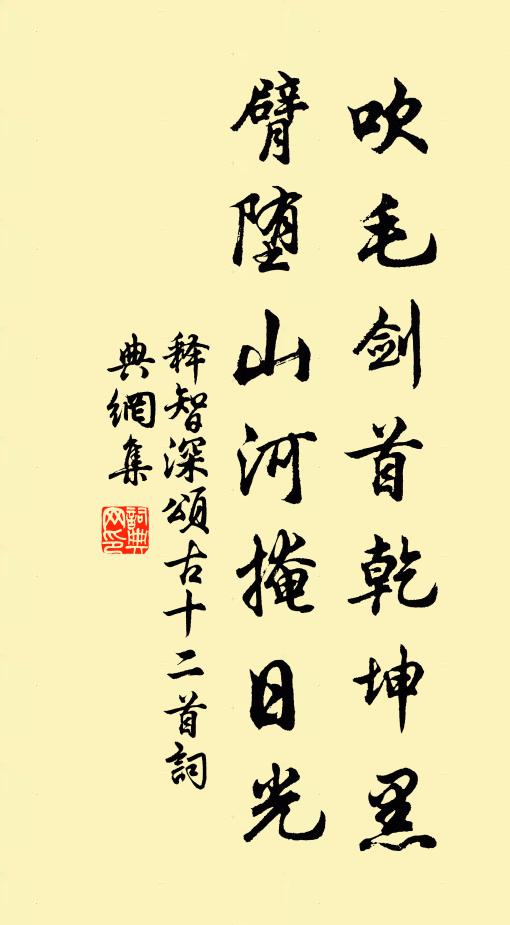 吹毛剑首乾坤黑
臂堕山河掩日光
释智深頌古十二首詞
典網集
詞典
网印